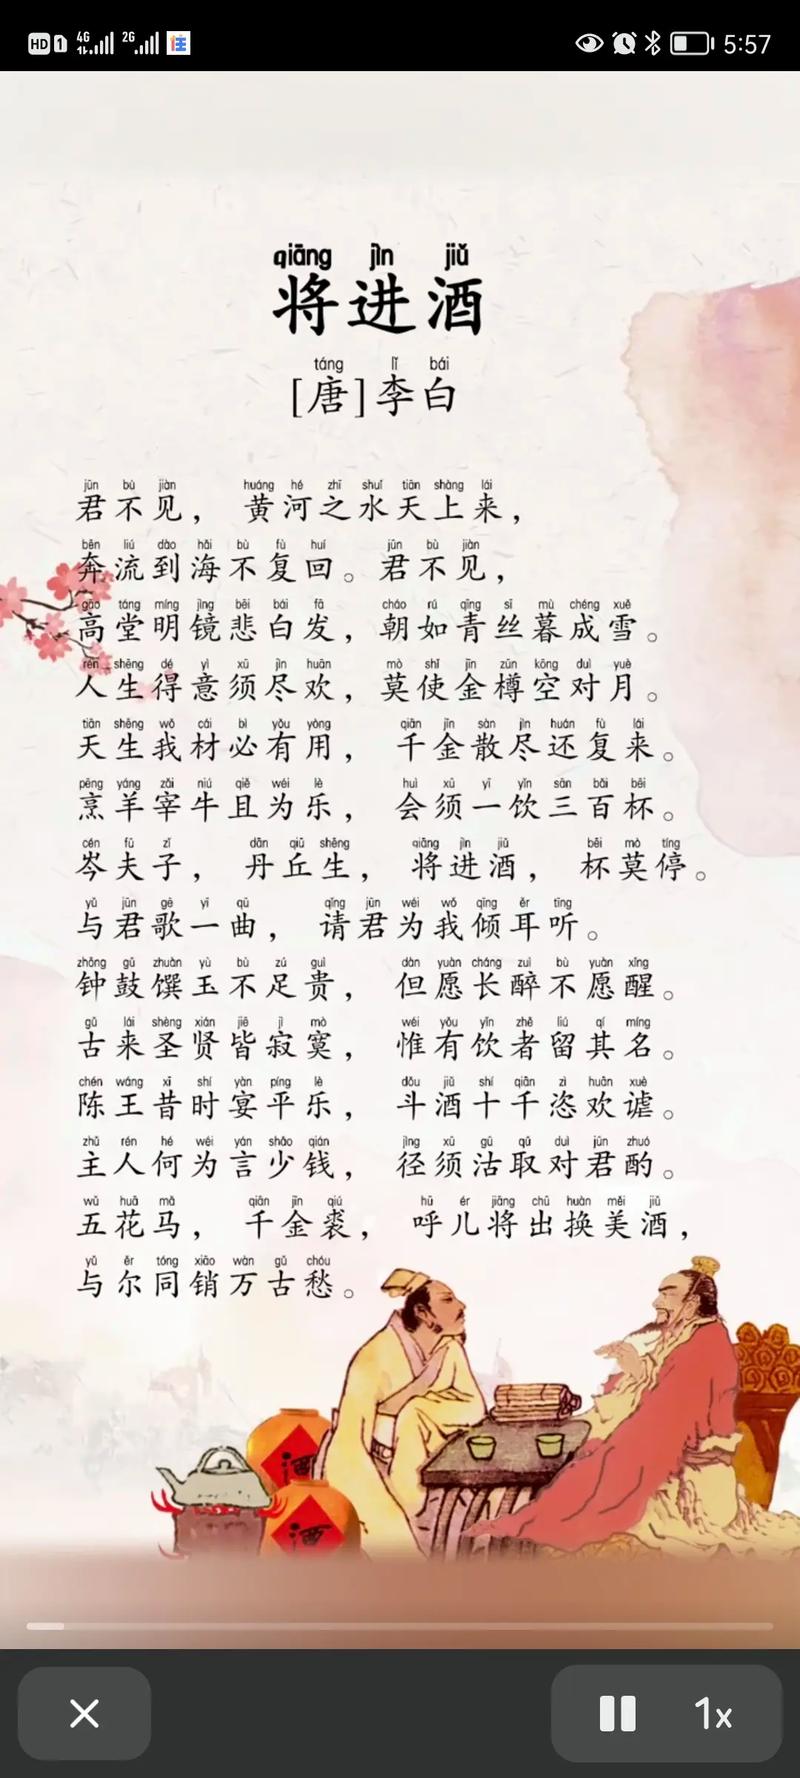 HD 1 4G 2G 5:57
qiāng jìn jiǔ
将进酒
táng lǐ bái
[唐]李白
jūn bù jiàn huáng hé zhī shuǐ tiān shàng lái
君不见，黄河之水天上来，
bēn liú dào hǎi bù fù huí jūn bù jiàn
奔流到海不复回。君不见，
gāo táng míng jìng bēi bái fà cháo rú qīng sī mù chéng xuě
高堂明镜悲白发，朝如青丝暮成雪。
rén shēng dé yì xū jìn huān mò shǐ jīn zūn kōng duì yuè
人生得意须尽欢，莫使金樽空对月。
tiān shēng wǒ cái bì yǒu yòng qiān jīn sàn jìn huán fù lái
天生我材必有用，千金散尽还复来。
pēng yáng zǎi niú qiě wéi lè huì xū yī yǐn sān bǎi bēi
烹羊宰牛且为乐，会须一饮三百杯。
cén fū zǐ dān qiū shēng qiāng jìn jiǔ bēi mò tíng
岑夫子，丹丘生，将进酒，杯莫停。
yǔ jūn gē yī qǔ qǐng jūn wèi wǒ qīng ěr tīng
与君歌一曲，请君为我倾耳听。
zhōng gǔ zhuàn yù bù zú guì dàn yuàn cháng zuì bù yuàn xǐng
钟鼓馔玉不足贵，但愿长醉不愿醒。
gǔ lái shèng xián jiē jì mò wéi yǒu yǐn zhě liú qí míng
古来圣贤皆寂寞，惟有饮者留其名。
chén wáng xī shí yàn píng lè dǒu jiǔ shí qiān zì huān xuè
陈王昔时宴平乐，斗酒十千恣欢谑。
zhǔ rén hé wéi yán shǎo qián jìng xū gū qǔ duì jūn zhuó
主人何为言少钱，径须沽取对君酌。
wǔ huā mǎ qiān jīn qiú hū ér jiāng chū huàn měi jiǔ
五花马，千金裘，呼儿将出换美酒，
yǔ ěr tóng xiāo wàn gǔ chóu
与尔同销万古愁。
酒
酒
1x